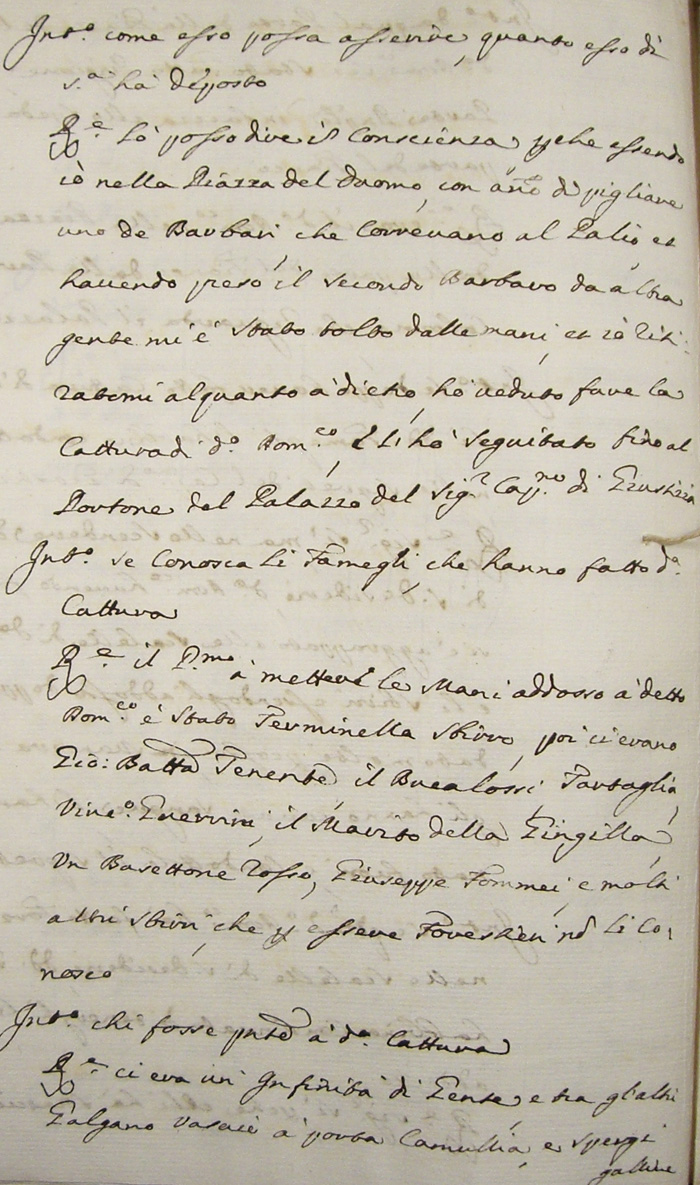 Int.º come esso possa asserire, quanto esso di
s.ª hà deposto
R.e Lò posso dire iñ Conscienza, p che essendo
iò nella Piazza del Duomo, con añio di pigliare
uno de Barbari, che Correvano al Palio, et
havendo preso il secondo Barbaro da altra
gente mi è stato tolto dalle mani, et iò riti:
ratomi alquanto à dieto, hò veduto fare la
Cattura di d.º Dom.co, e Li hò seguitato fino al
Portone del Palazzo del Sig.r Cap.no di Giustizia
Int.º se Conosca Li Famegli, che hanno fatto d.ª
Cattura
R.e il P.mo à mettere le Mani addosso à detto
Dom.co è stato Terminella sbirro, poi ci erano
Gio: Batta Tenente, il Bucalossi, Tartaglia,
Vinc.º Guerrini, il Marito della Zingilla,
Un Basettone rosso, Giuseppe Tommei, e molti
altri sbirri, che p essere Forestieri nõ Li Co:
nosco
Int.º chi fosse pñte à d.ª Cattura
R.e ci era un' Infinità di Gente, e tra gl'altri
Galgano Vasaio à porta Camullia, e Spergi
galline